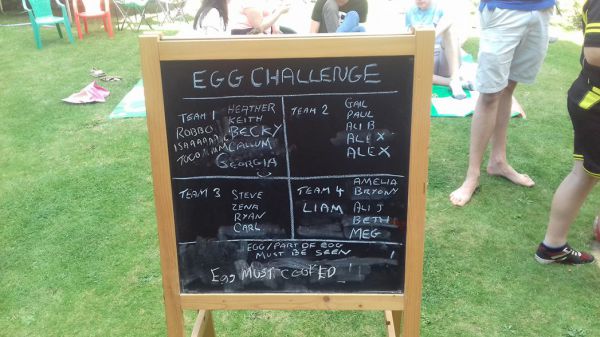 EGG CHALLENGE
TEAM 1 HEATHER
KEITH
ROBBO BECKY
CALLUM
GEORGIA
TEAM 2 GAIL
PAUL
ALI B
ALEX
ALEX
TEAM 3 STEVE
ZENA
RYAN
CARL
TEAM 4 AMELIA
BRYONY
LIAM ALI J
BETH
MEG
EGG/PART OF EGG
MUST BE SEEN !
Egg MUST COOKED !